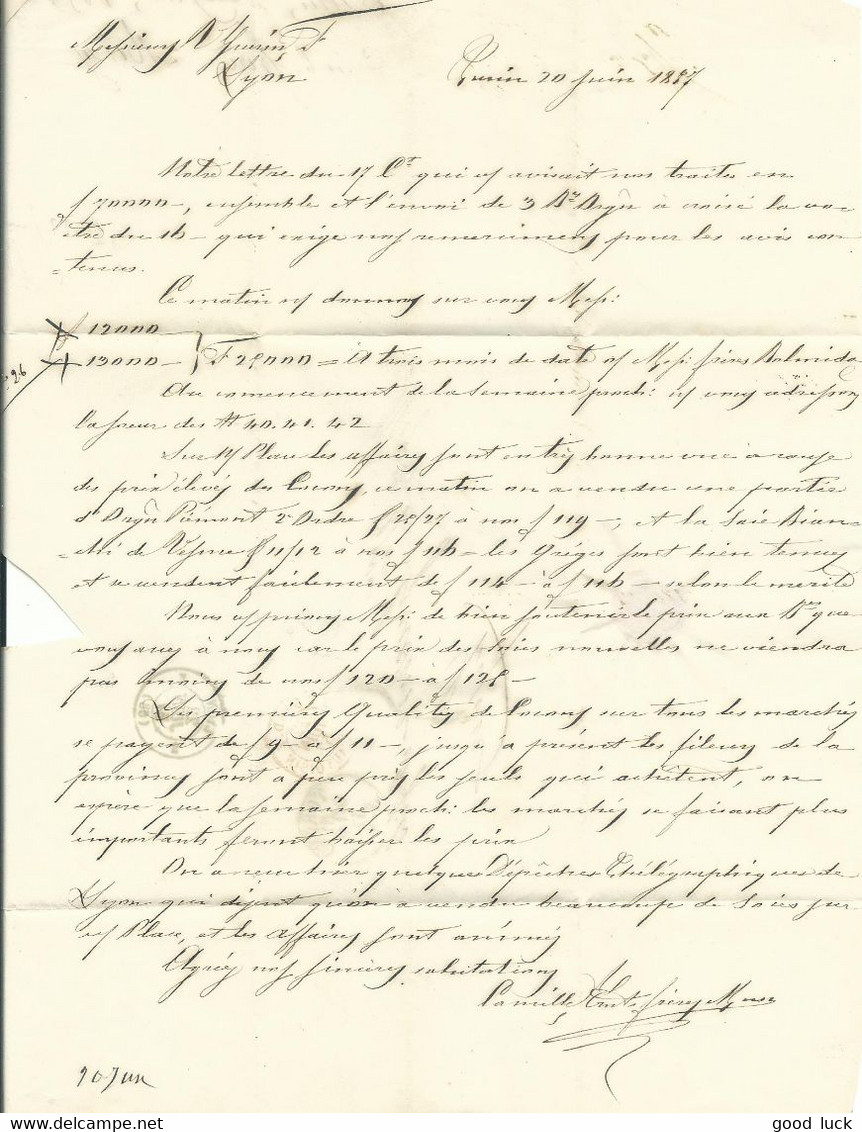 Messieurs Vᵉ Guerin & F
Lyon
Turin 20 Juin 1857
Notre lettre du 17 Cᵗ qui vs avisait nos traites en
f 70000 –, ensemble et l'envoi de 3 Bˢ Orgⁿ à croisé la vo-
=tre du 16 – qui exige nos remercimens pour les avis con
=tenus.
Ce matin vs donnons sur vous Mess:
f 12000
" 13000 – } F 25000 = à trois mois de date o/ Mess: frères
26
Au commencement de la Semaine proch: vs vous adressons
la facture des Nº 40. 41. 42
Sur n/ Place les affaires sont en très bonne vue à cause
des prix élevés des Cocons, ce matin on a vendu une partie
d'Orgⁿ Piémont 2ᵉ Ordre f 25/27 à nos f 119 –, et la Soie Bian
=chi de f 11/12 à nos f 116 – les Grèges sont bien tenues
et se vendent facilement de f 114 – à f 116 – selon le merite
Nous vs prions Mess: de bien soutenir le prix aux Bˢ que
vous avez à nous car le prix des Soies nouvelles ne viendra
pas moins de nos f 120 – à f 125 –
Les premières Qualités de Cocons sur tous les marchés
se payent de f 9 – à f 11 –, jusqu'à présent les fileurs de la
province sont à peu près les seuls qui achètent, on
espère que la semaine proch: les marchés se faisant plus
importants feront baisser les prix
On a reçu hier quelques Dépêches Thélégraphiques de
Lyon qui disent qu'on a vendu beaucoup de Soies sur
v/ Place, et les affaires sont animés
Agréez nos sincères salutations
Camille frères
20 Juin
good luck